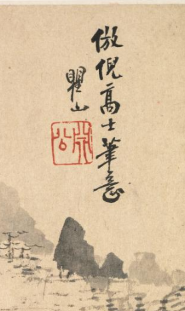 倣倪高士筆意
瞿山